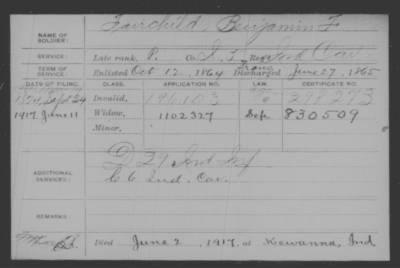 NAME OF SOLDIER: Fairchild, Benjamin F
SERVICE: Late rank, P. Co. Cav
TERM OF SERVICE: Enlisted Oct 12, 1864 Discharged June 27, 1865
DATE OF FILING. CLASS. APPLICATION NO. LAW. CERTIFICATE NO.
Sept 24 Invalid, 196103
1917 June 11 Widow, 1102327 830509
Minor,
ADDITIONAL SERVICES: D 29 Ind Inf
C 6 Ind. Cav.
REMARKS:
Died June 2, 1917, at Kewanna, Ind